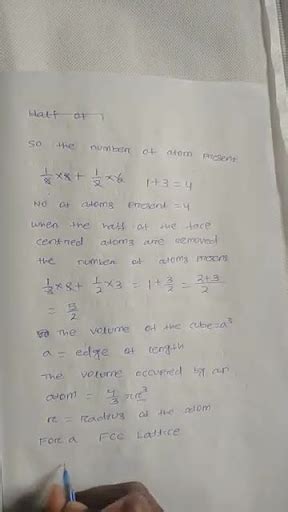 Half of 
So the number of atom present
1/8 × 8 + 1/2 × 6 1+3 = 4
No of atoms present = 4
when the half of the face
centred atoms are removed
the number of atoms present
1/8 × 8 + 1/2 × 3 = 1 + 3/2 = 2+3/2
= 5/2
The volume of the cube = a³
a = edge of length
The volume occupied by an
atom = 4/3 πr³
r = Radius of the atom
For a FCC Lattice